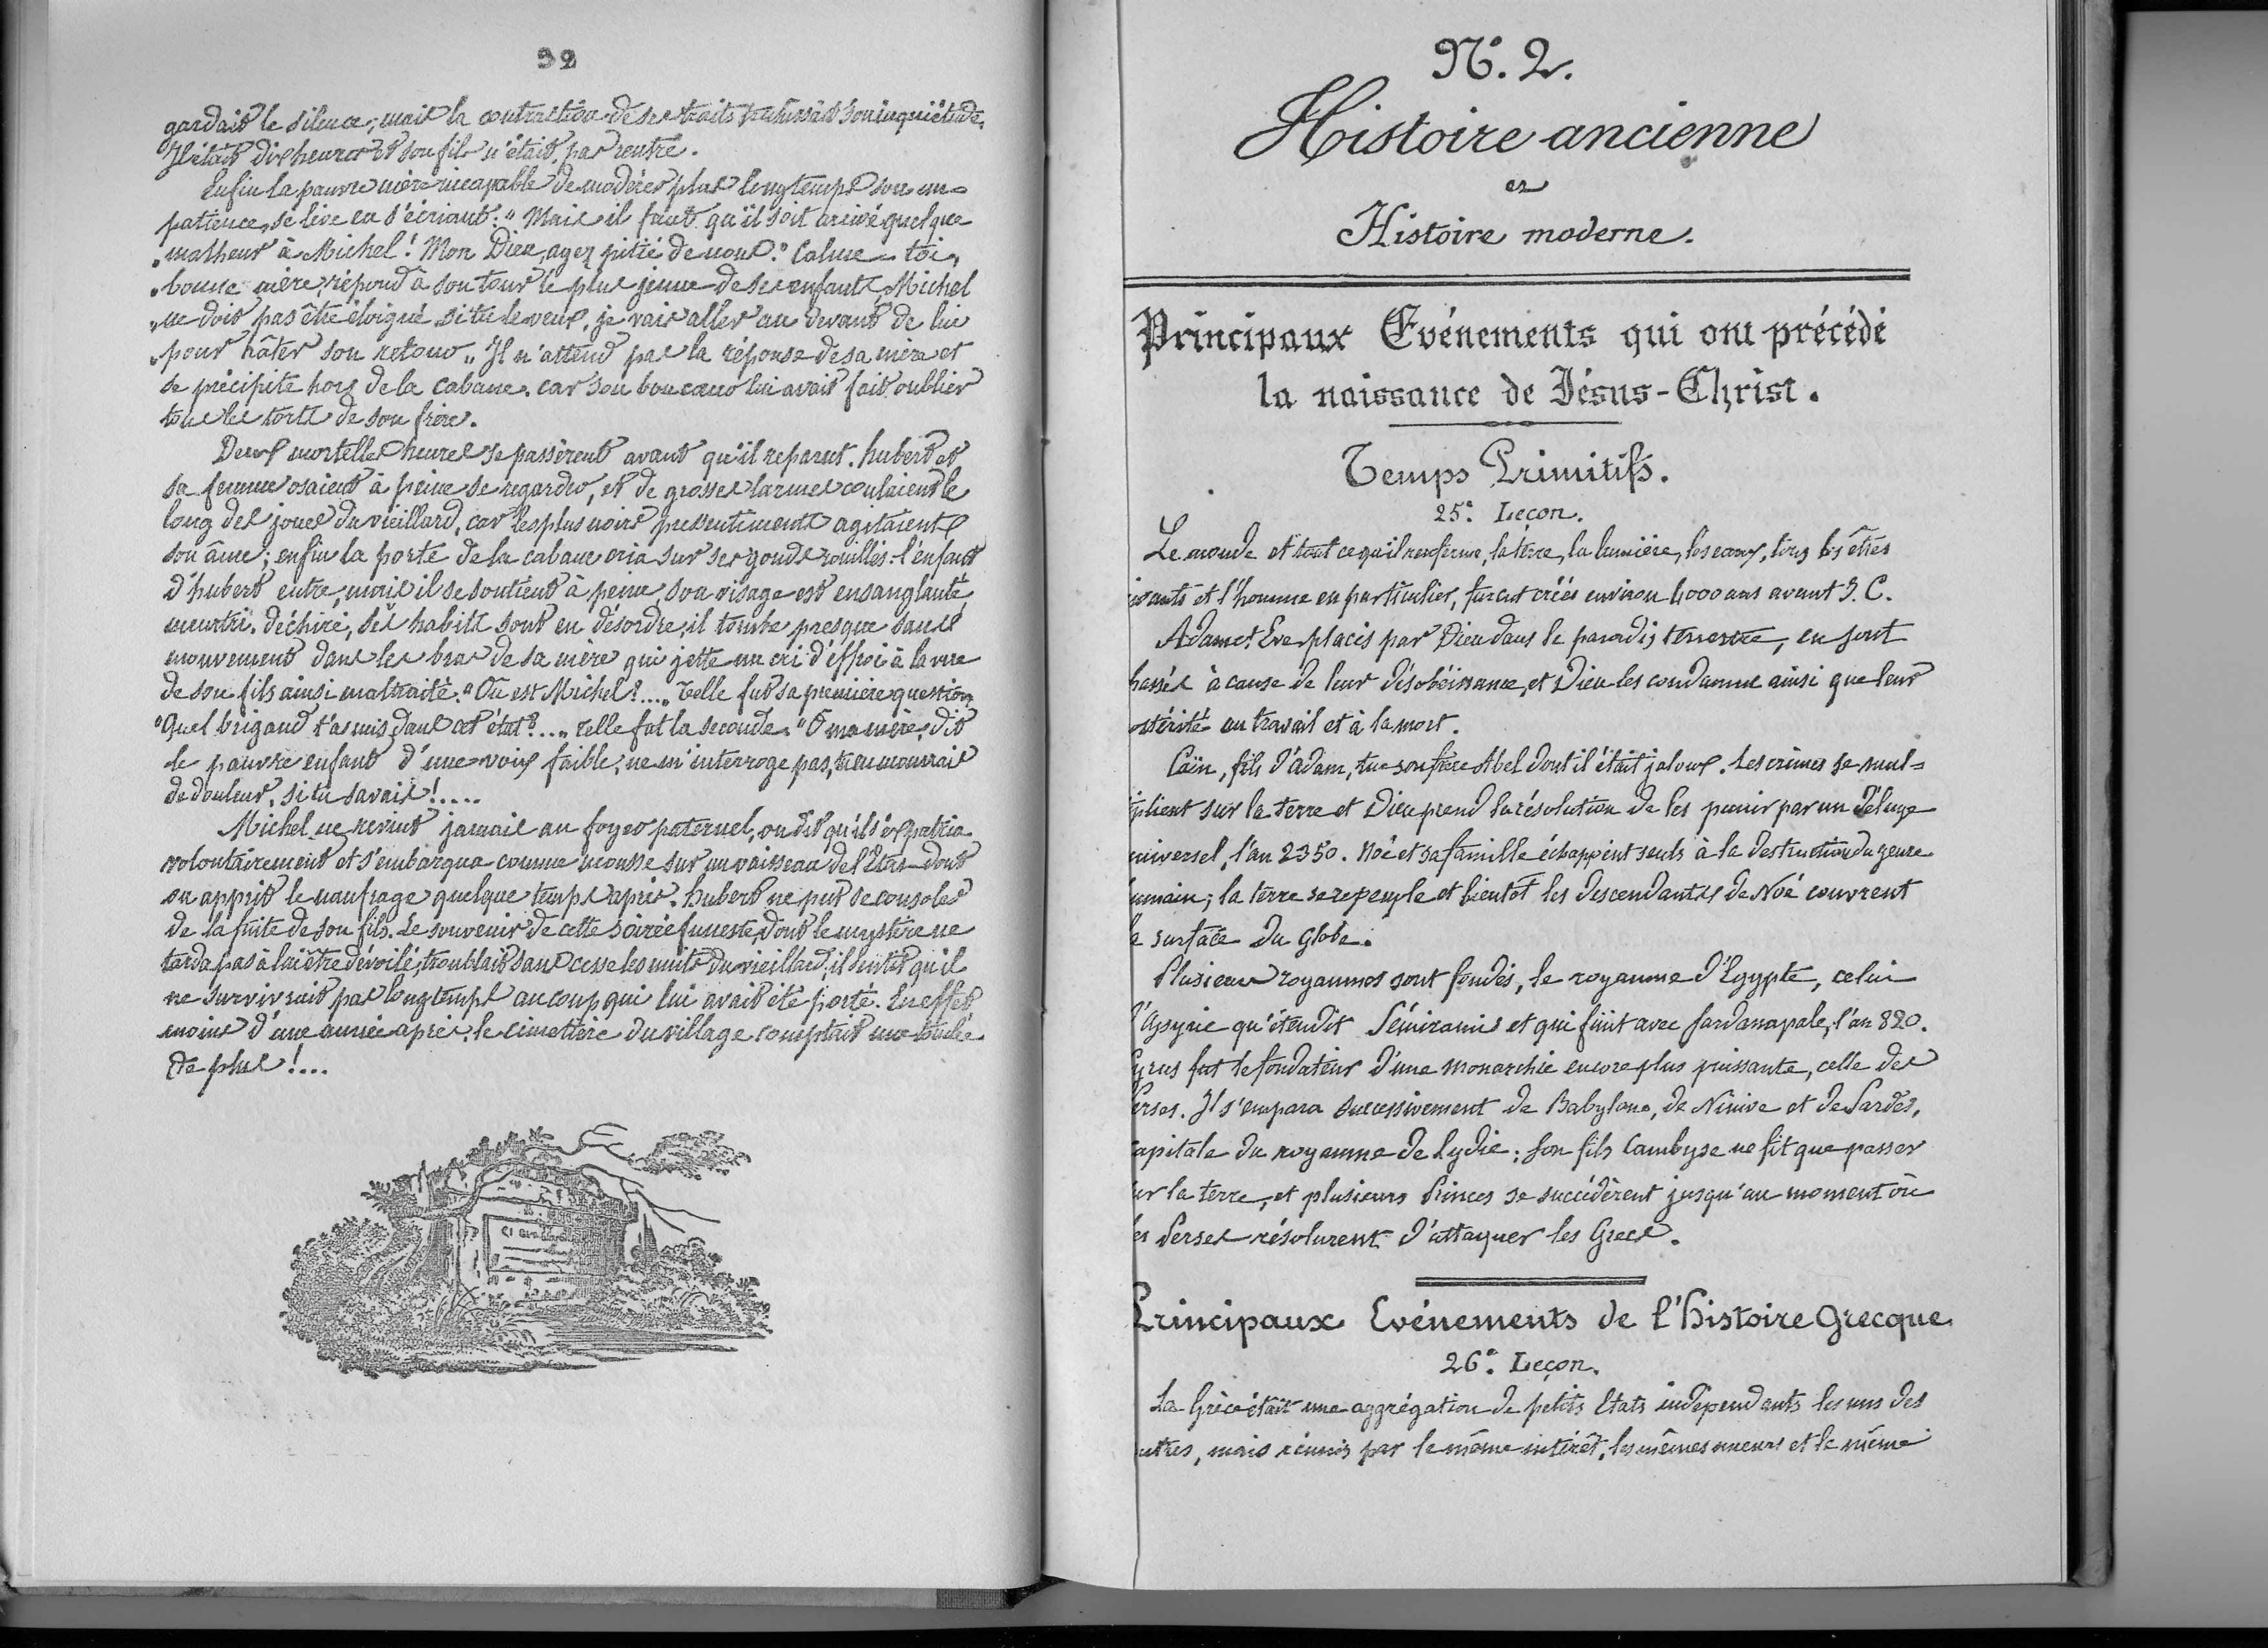 32
gardait le silence; mais la contraction de ses traits trahissait son inquiétude.
Il était dix heures et son fils n'était pas rentré.
Enfin la pauvre mère incapable de modérer plus longtemps son im-
patience, se lève en s'écriant: " Mais il faut qu'il soit arrivé quelque
" malheur à Michel! Mon Dieu, ayez pitié de nous." Calme-toi,
" bonne mère, répond à son tour le plus jeune de ses enfants, Michel
" ne doit pas être éloigné si tu le veux, je vais aller au devant de lui
" pour hâter son retour " Il n'attend pas la réponse de sa mère et
se précipite hors de la cabane, car son bon cœur lui avait fait oublier
tous les torts de son frère.
Deux mortelles heures se passèrent avant qu'il reparut. hubert et
sa femme osaient à peine se regarder, et de grosses larmes coulaient le
long des joues du vieillard, car les plus noirs pressentiments agitaient
son âme; enfin la porte de la cabane cria sur ses gonds rouillés: l'enfant
d'hubert entre, mais il se soutient à peine, son visage est ensanglanté
meurtri, déchiré, ses habits sont en désordre, il tombe presque sans
mouvement dans les bras de sa mère qui jette un cri d'effroi à la vue
de son fils ainsi maltraité. " Où est Michel?.... " telle fut sa première question
" Quel brigand t'a mis dans cet état?.... " telle fut la seconde. " O ma mère, dit
le pauvre enfant d'une voix faible, ne m'interroge pas, tu en mourrais
de douleur, si tu savais!.....
Michel ne revint jamais au foyer paternel, on dit qu'il s'expatria
volontairement et s'embarqua comme mousse sur un vaisseau de l'Etat dont
on apprit le naufrage quelque temps après. hubert ne put se consoler
de la fuite de son fils. Le souvenir de cette soirée funeste, dont le mystère ne
tarda pas à lui être dévoilé, troublait sans cesse les nuits du vieillard, il sentit qu'il
ne survivrait pas longtemps au coup qui lui avait été porté. En effet
moins d'une année après, le cimetière du village comptait une tombe
de plus!...
N.º 2.
Histoire ancienne
et
Histoire moderne.
Principaux Evénements qui ont précédé
la naissance de Jésus-Christ.
Temps Primitifs.
25.e Leçon.
Le monde et tout ce qu'il renferme, la terre, la lumière, les eaux, tous les êtres
ivants et l'homme en particulier, furent créés environ 4000 ans avant J. C.
Adam et Eve placés par Dieu dans le paradis terrestre, en sont
hassés à cause de leur désobéissance, et Dieu les condamne ainsi que leur
ostérité au travail et à la mort.
Caïn, fils d'Adam, tue son frère Abel dont il était jaloux. Les crimes se mul=
iplient sur la terre et Dieu prend la résolution de les punir par un déluge
universel, l'an 2350. Noé et sa famille échappent seuls à la destruction du genre
umain; la terre se repeuple et bientôt les descendants de Noé couvrent
a surface du globe.
Plusieurs royaumes sont fondés, le royaume d'Egypte, celui
d'Assyrie qu'étendit Sémiramis et qui finit avec Sardanapale, l'an 820.
Cyrus fut le fondateur d'une monarchie encore plus puissante, celle des
erses. Il s'empara successivement de Babylone, de Ninive et de Sardes,
apitale du royaume de Lydie: son fils Cambyse ne fit que passer
ur la terre, et plusieurs Princes se succédèrent jusqu'au moment où
es Perses résolurent d'attaquer les Grecs.
Principaux Evénements de l'histoire Grecque
26.e Leçon.
La Grèce était une aggrégation de petits Etats indépendants les uns des
utres, mais réunis par le même intérêt, les mêmes mœurs et le même